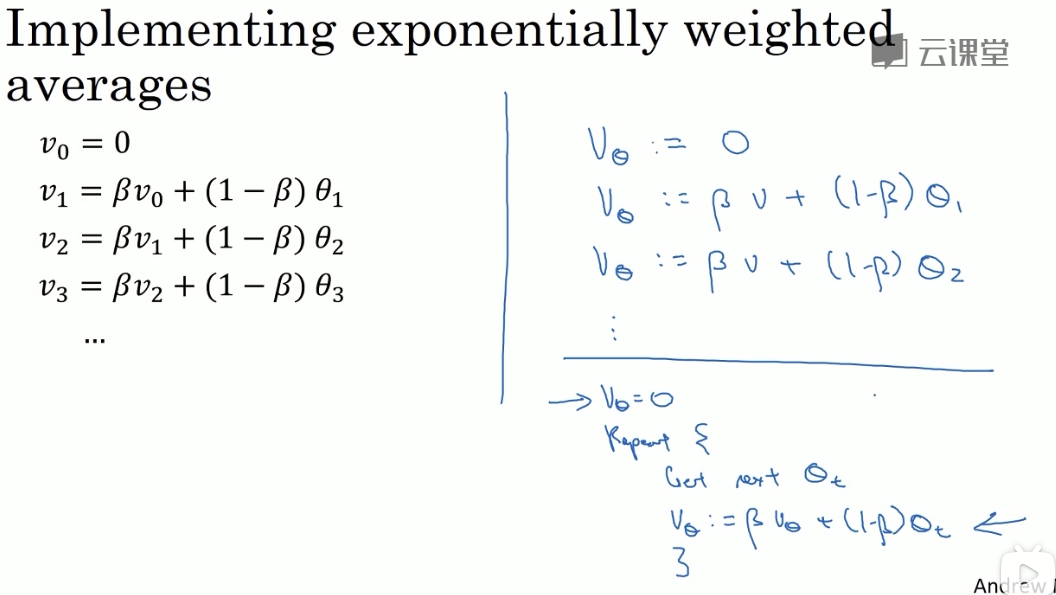 Implementing exponentially weighted
averages
云课堂
v₀ = 0
v₁ = βv₀ + (1 − β) θ₁
v₂ = βv₁ + (1 − β) θ₂
v₃ = βv₂ + (1 − β) θ₃
...
V_θ := 0
V_θ := β v + (1-β) θ₁
V_θ := β v + (1-β) θ₂
⋮
→ V_θ = 0
Repeat {
Get next θ_t
V_θ := β V_θ + (1-β) θ_t ←
}
Andrew